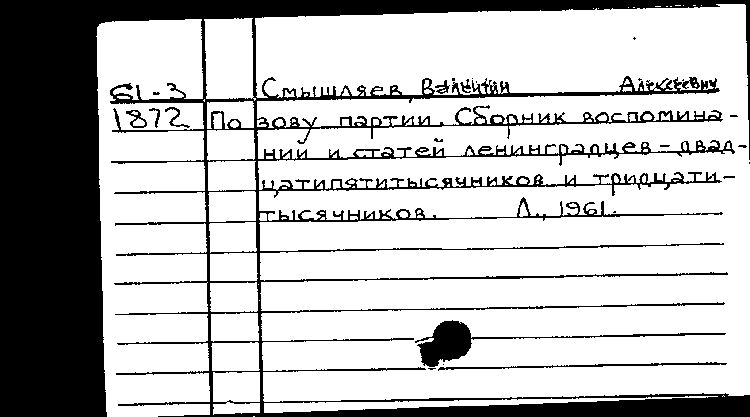 61-3 Смышляев, Валентин Алексеевич
1872 По зову партии. Сборник воспомина-
ний и статей ленинградцев-двад-
цатипятитысячников и тридцати-
тысячников. Л., 1961.